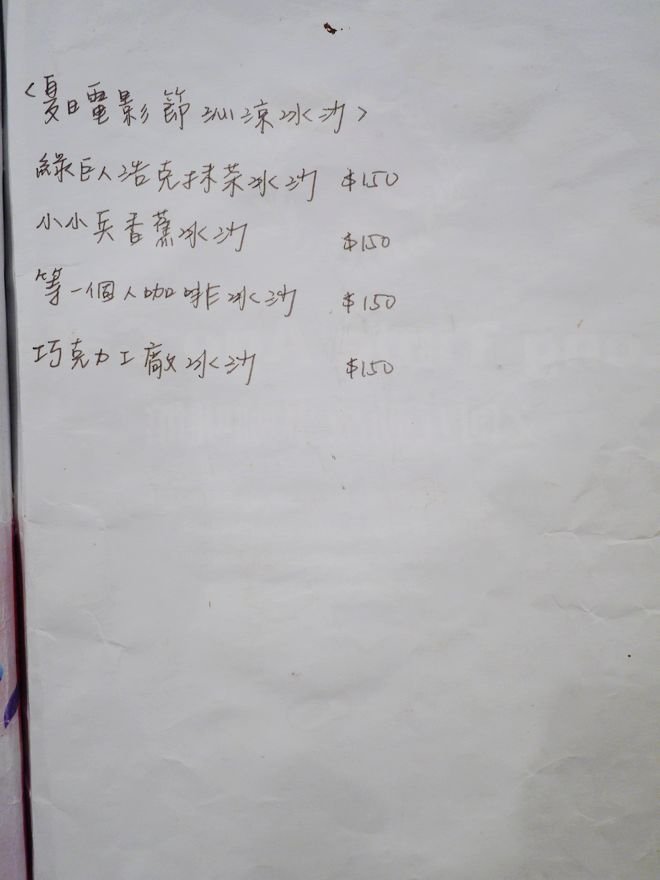 <夏日電影節 沁涼冰沙>
綠巨人浩克抹茶冰沙 $150
小小兵香蕉冰沙 $150
等一個人咖啡冰沙 $150
巧克力工廠冰沙 $150